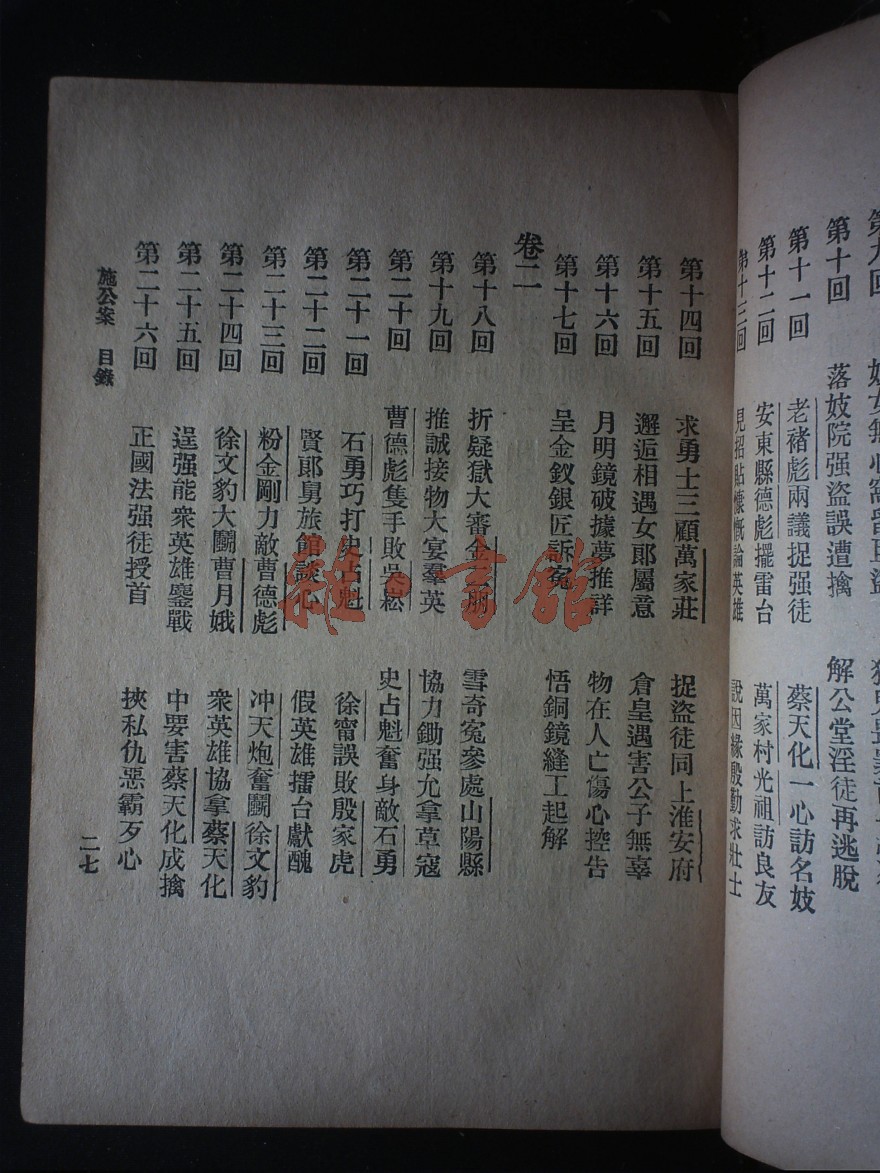 第十回 落妓院强盜誤遭擒 解公堂淫徒再逃脫
第十一回 老褚彪兩議捉强徒 蔡天化一心訪名妓
第十二回 安東縣德彪擺雷台 萬家村光祖訪良友
第十三回 見招貼慷慨論英雄 說因緣殷勤求壯士
第十四回 求勇士三顧萬家莊 捉盜徒同上淮安府
第十五回 邂逅相遇女郎屬意 倉皇遇害公子無辜
第十六回 月明鏡破據夢推詳 物在人亡傷心控告
第十七回 呈金釵銀匠訴冤 悟銅鏡縫工起解
卷二
第十八回 折疑獄大審金 雪奇冤參處山陽縣
第十九回 推誠接物大宴羣英 協力鋤强允拿草寇
第二十回 曹德彪隻手敗吳崧 史占魁奮身敵石勇
第二十一回 石勇巧打史占魁 徐甯誤敗殷家虎
第二十二回 賢郞舅旅館談心 假英雄擂台獻醜
第二十三回 粉金剛力敵曹德彪 冲天炮奮鬭徐文豹
第二十四回 徐文豹大鬭曹月娥 衆英雄協拿蔡天化
第二十五回 逞强能衆英雄鏖戰 中要害蔡天化成擒
第二十六回 正國法强徒授首 挾私仇惡霸歹心
施公案 目錄
二七
雜書館